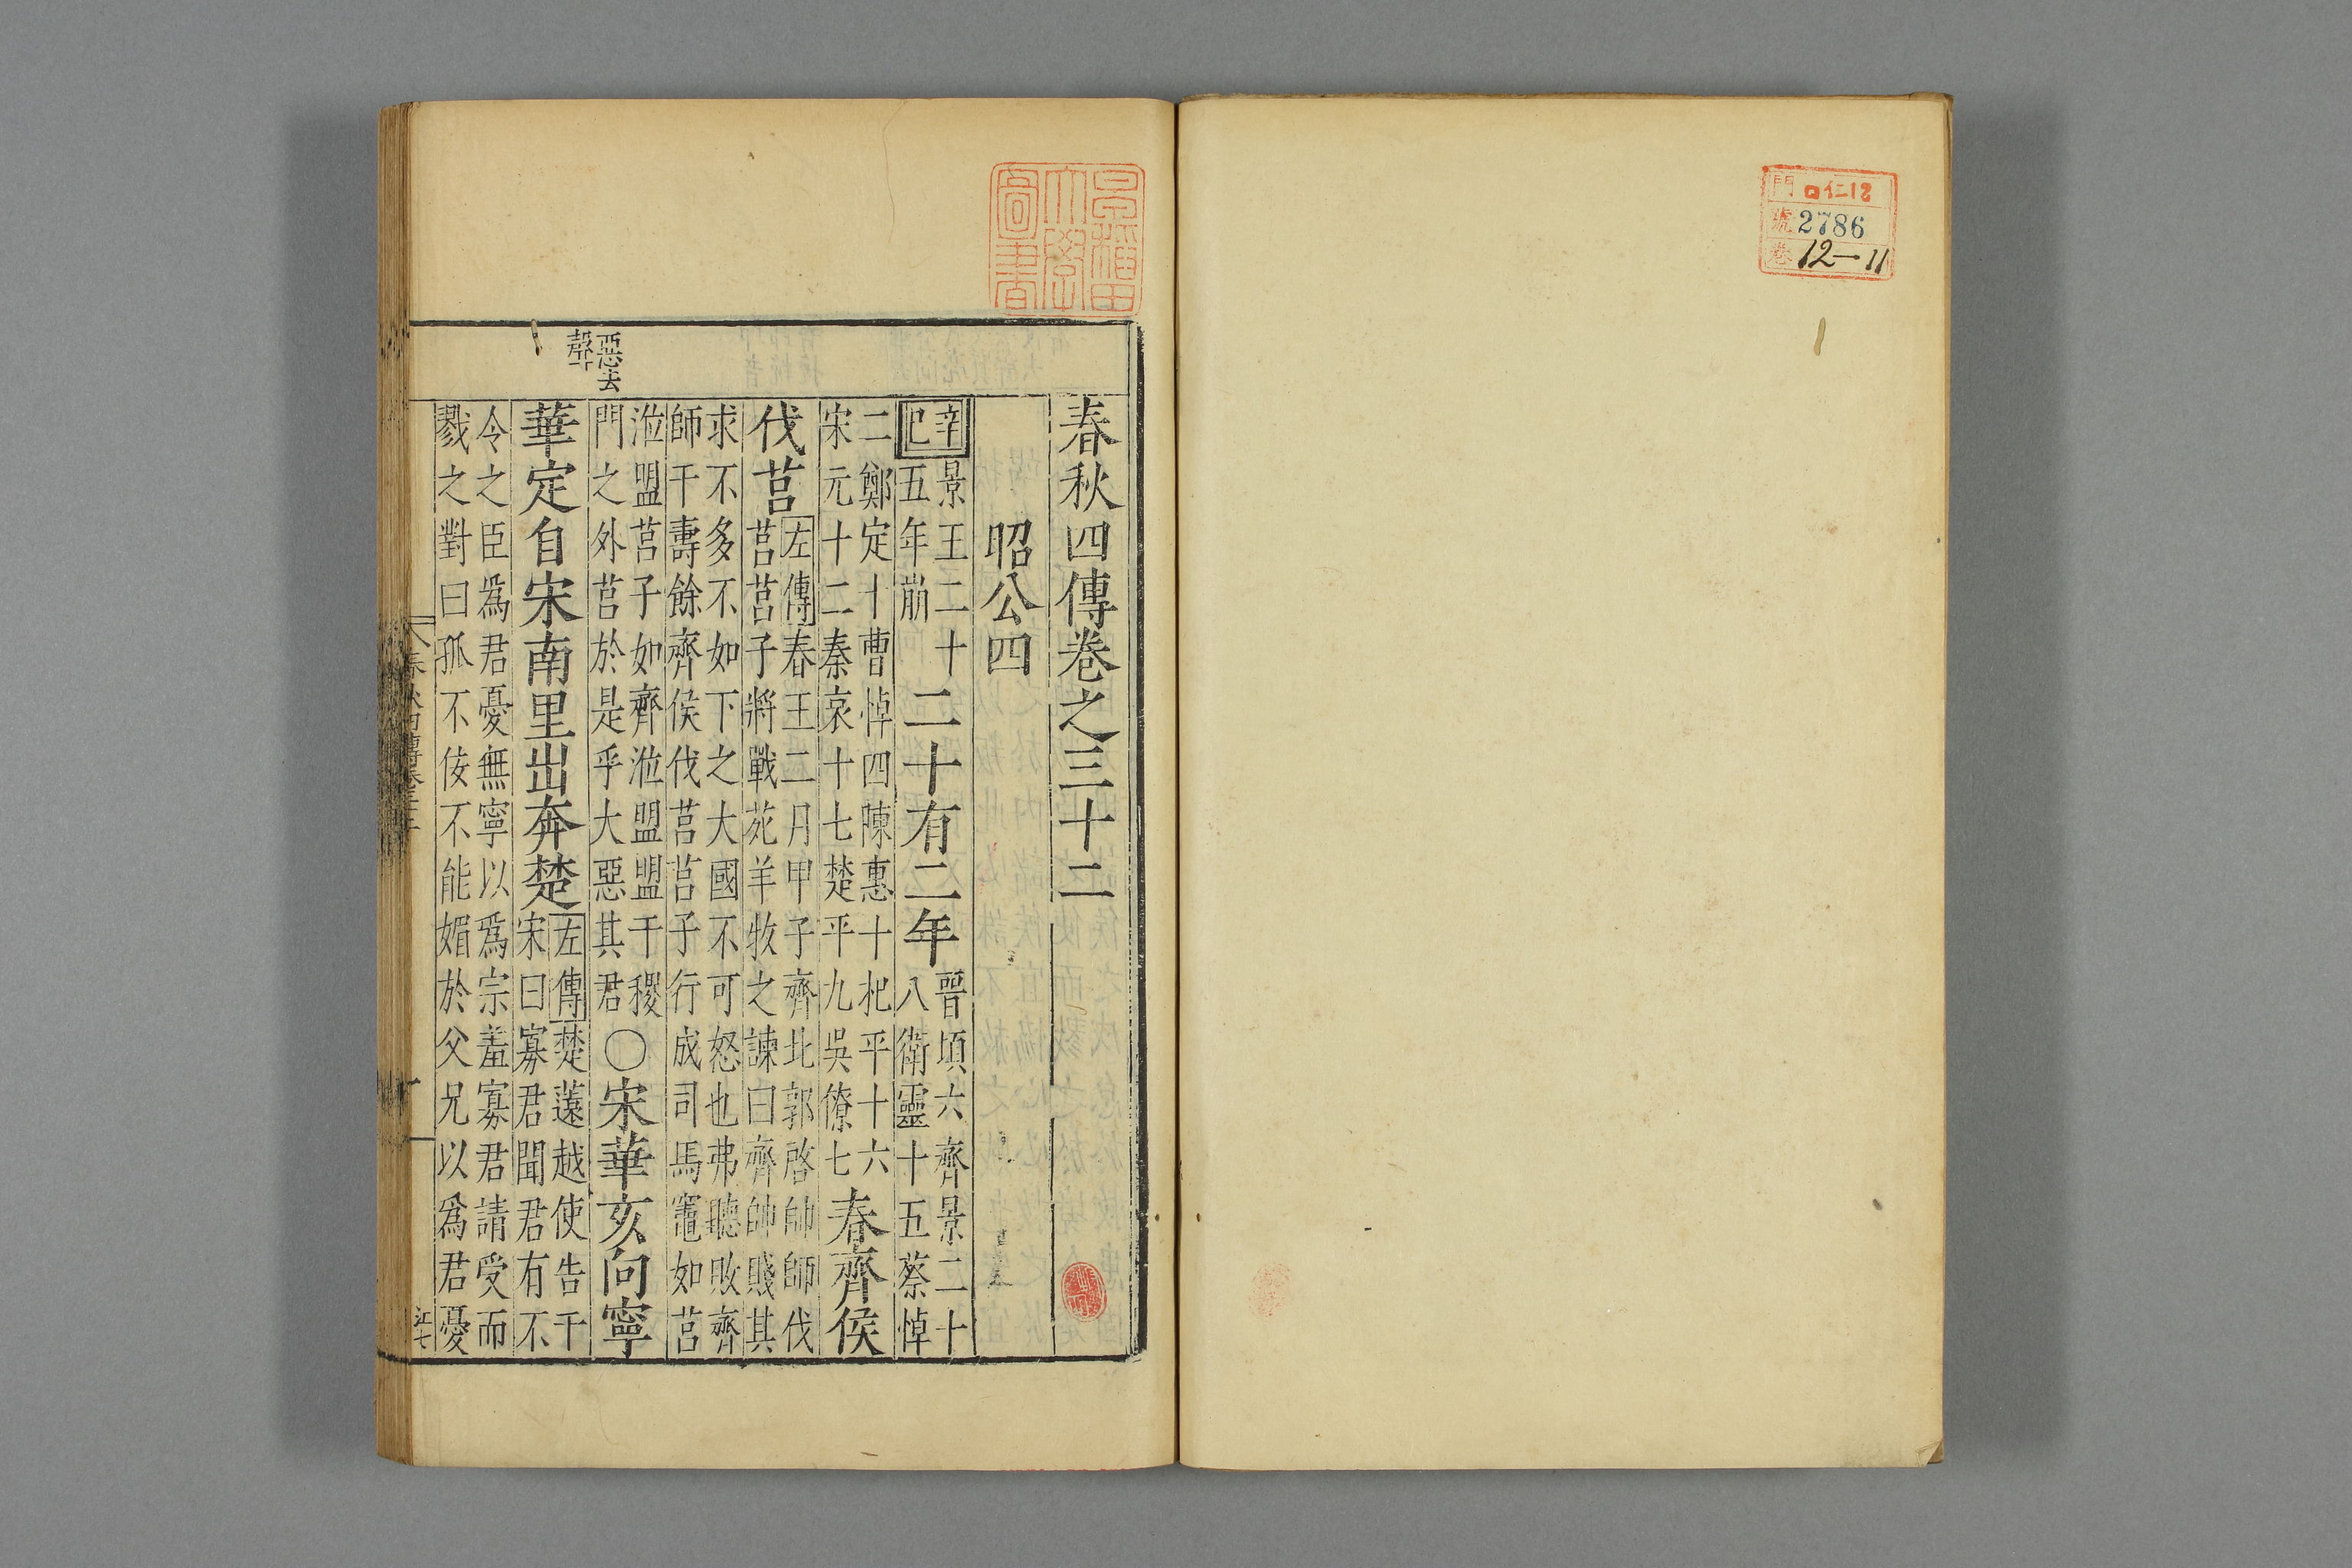 門 口仁12
號 2786
卷 12-11
早稲田
大學
圖書
惡去
聲
春秋四傳卷之三十二
昭公四
辛巳
景王二十
五年崩
二十有二年
晉頃六齊景二十
八衛靈十五蔡悼
二鄭定十曹悼四陳惠十杞平十六
宋元十二秦哀十七楚平九吳僚七
春齊侯
伐莒
左傳春王二月甲子齊北郭啓帥師伐
莒莒子將戰苑羊牧之諫曰齊帥賤其
求不多不如下之大國不可怒也弗聽敗齊
師于壽餘齊侯伐莒莒子行成司馬竈如莒
涖盟莒子如齊涖盟盟于稷
門之外莒於是乎大惡其君
○宋華亥向寧
華定自宋南里出奔楚
左傳楚薳越使告于
宋曰寡君聞君有不
令之臣爲君憂無寧以爲宗羞寡君請受而
戮之對曰孤不佞不能媚於父兄以爲君憂